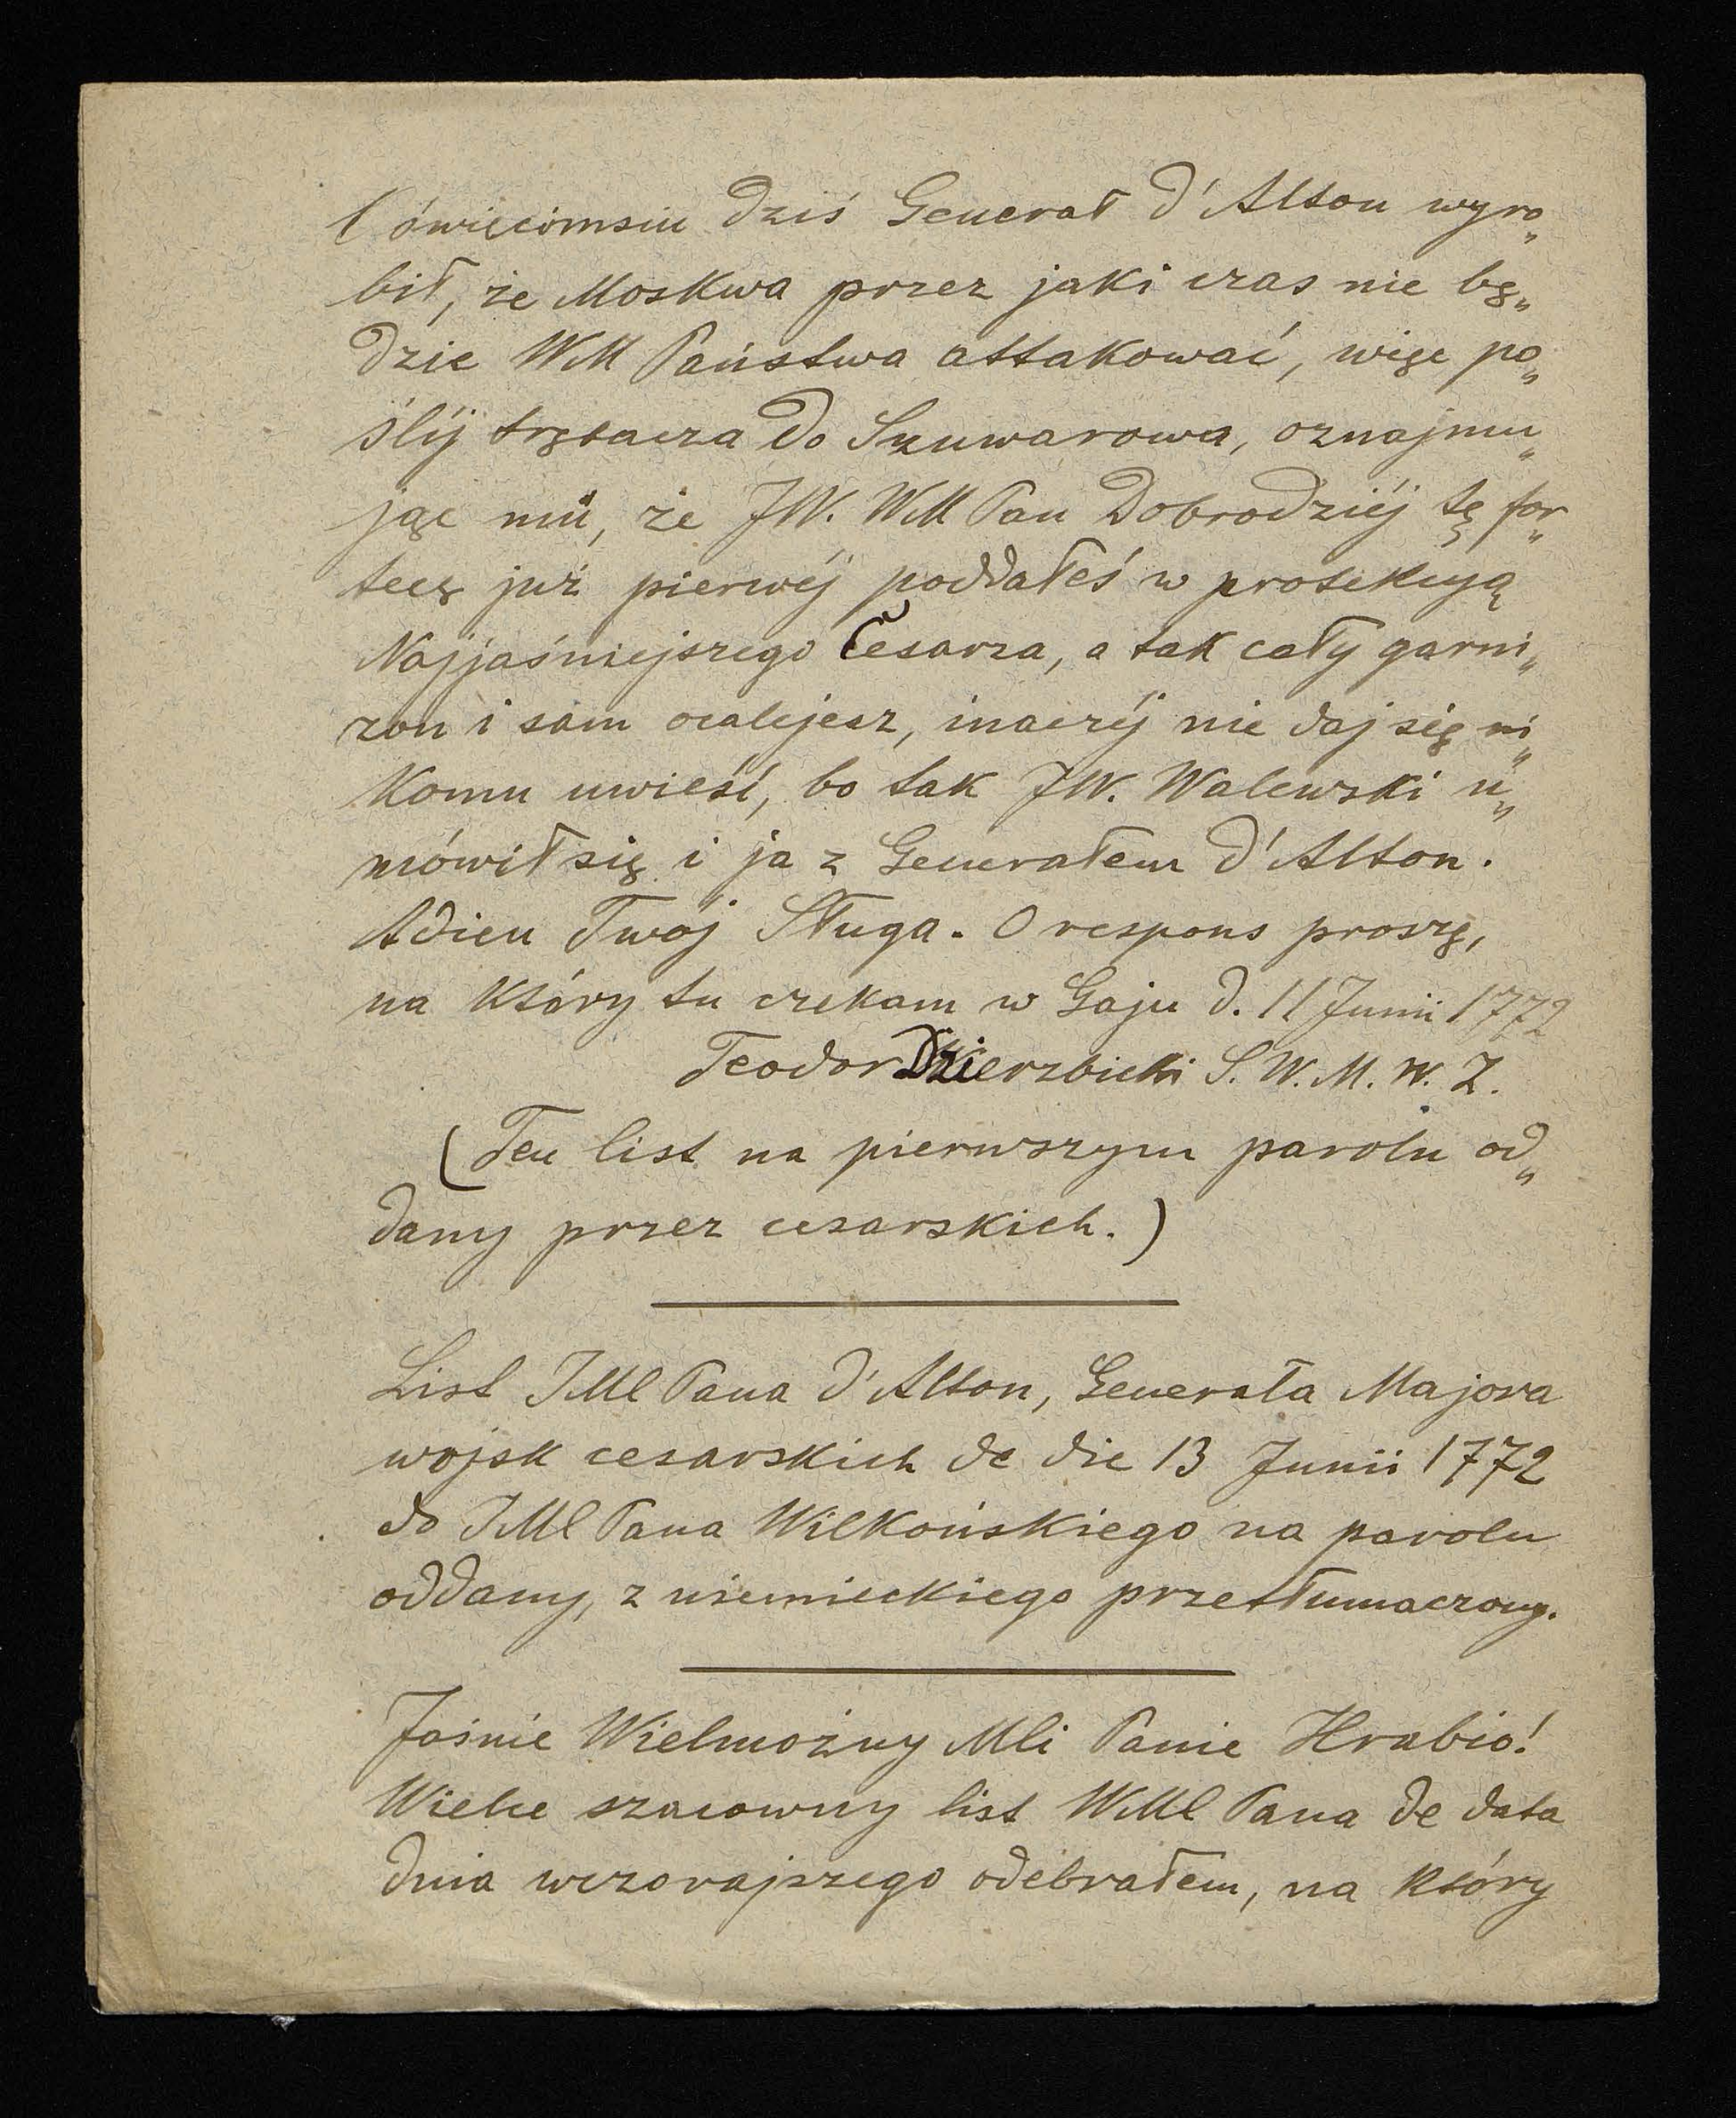 Oświęcimsiu dziś Generał d'Alton wyro„
bił, że Moskwa przez jaki czas nie bę„
dzie WM Państwa attakować, więc po„
ślij trębacza do Suuwarowa, oznajmu„
jąc mu, że JW. WM Pan Dobrodziéj tę for„
tecę już pierwéj poddałeś w protekcyą
Najjaśniejszego Cesarza, a tak cały garni„
zon i sam ocalejesz, inaczéj nie daj się ni„
komu uwieść, bo tak JW. Walewski u„
mówił się i ja z Generałem d'Alton.
Adieu Twój Sługa. O respons proszę,
na który tu czekam w Gaju d. 11 Junii 1772
Teodor Dzierzbicki S. W. M. W. Z.
(Ten list na pierwszym parolu od„
dany przez cesarskich.)
List JMC Pana d'Alton, Generała Majora
wojsk cesarskich de die 13 Junii 1772
do JMC Pana Wilkońskiego na parolu
oddany, z niemieckiego przetłumaczony.
Jaśnie Wielmożny MCi Panie Hrabio!
Wielce szacowny list WMC Pana de data
dnia wczorajszego odebrałem, na który